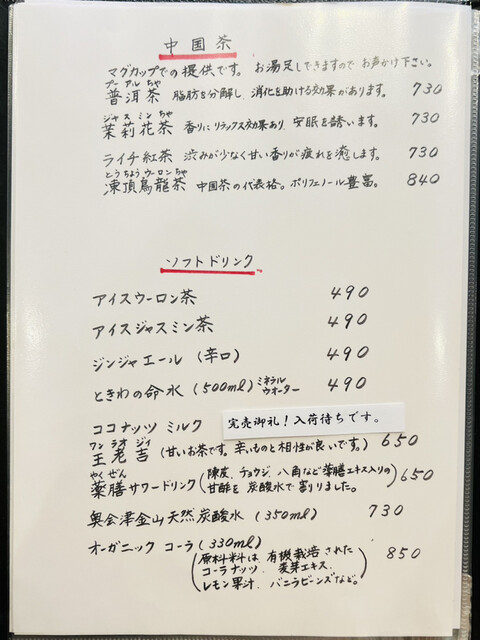 中国茶
マグカップでの提供です。 お湯足しできますので お声かけ下さい。
プーアルちゃ
普洱茶 脂肪を分解し、消化を助ける効果があります。 730
ジャスミンちゃ
茉莉花茶 香りにリラックス効果あり、安眠を誘います。 730
ライチ紅茶 渋みが少なく甘い香りが疲れを癒します。 730
とうちょうウーロンちゃ
凍頂烏龍茶 中国茶の代表格。ポリフェノール豊富。 840
ソフトドリンク
アイスウーロン茶 490
アイスジャスミン茶 490
ジンジャエール (辛口) 490
ときわの命水 (500ml) ミネラルウォーター 490
ココナッツ ミルク 完売御礼！入荷待ちです。
ワンラオジイ
王老吉 (甘いお茶です。辛いものと相性が良いです。) 650
やくぜん
薬膳サワードリンク (陳皮、チョウジ、八角など薬膳エキス入りの 650
甘酢を炭酸水で割りました。)
奥会津金山天然炭酸水 (350ml) 730
オーガニック コーラ (330ml) 850
(原料料は、有機栽培された
コーラナッツ、麦芽エキス、
レモン果汁、バニラビーンズなど。)